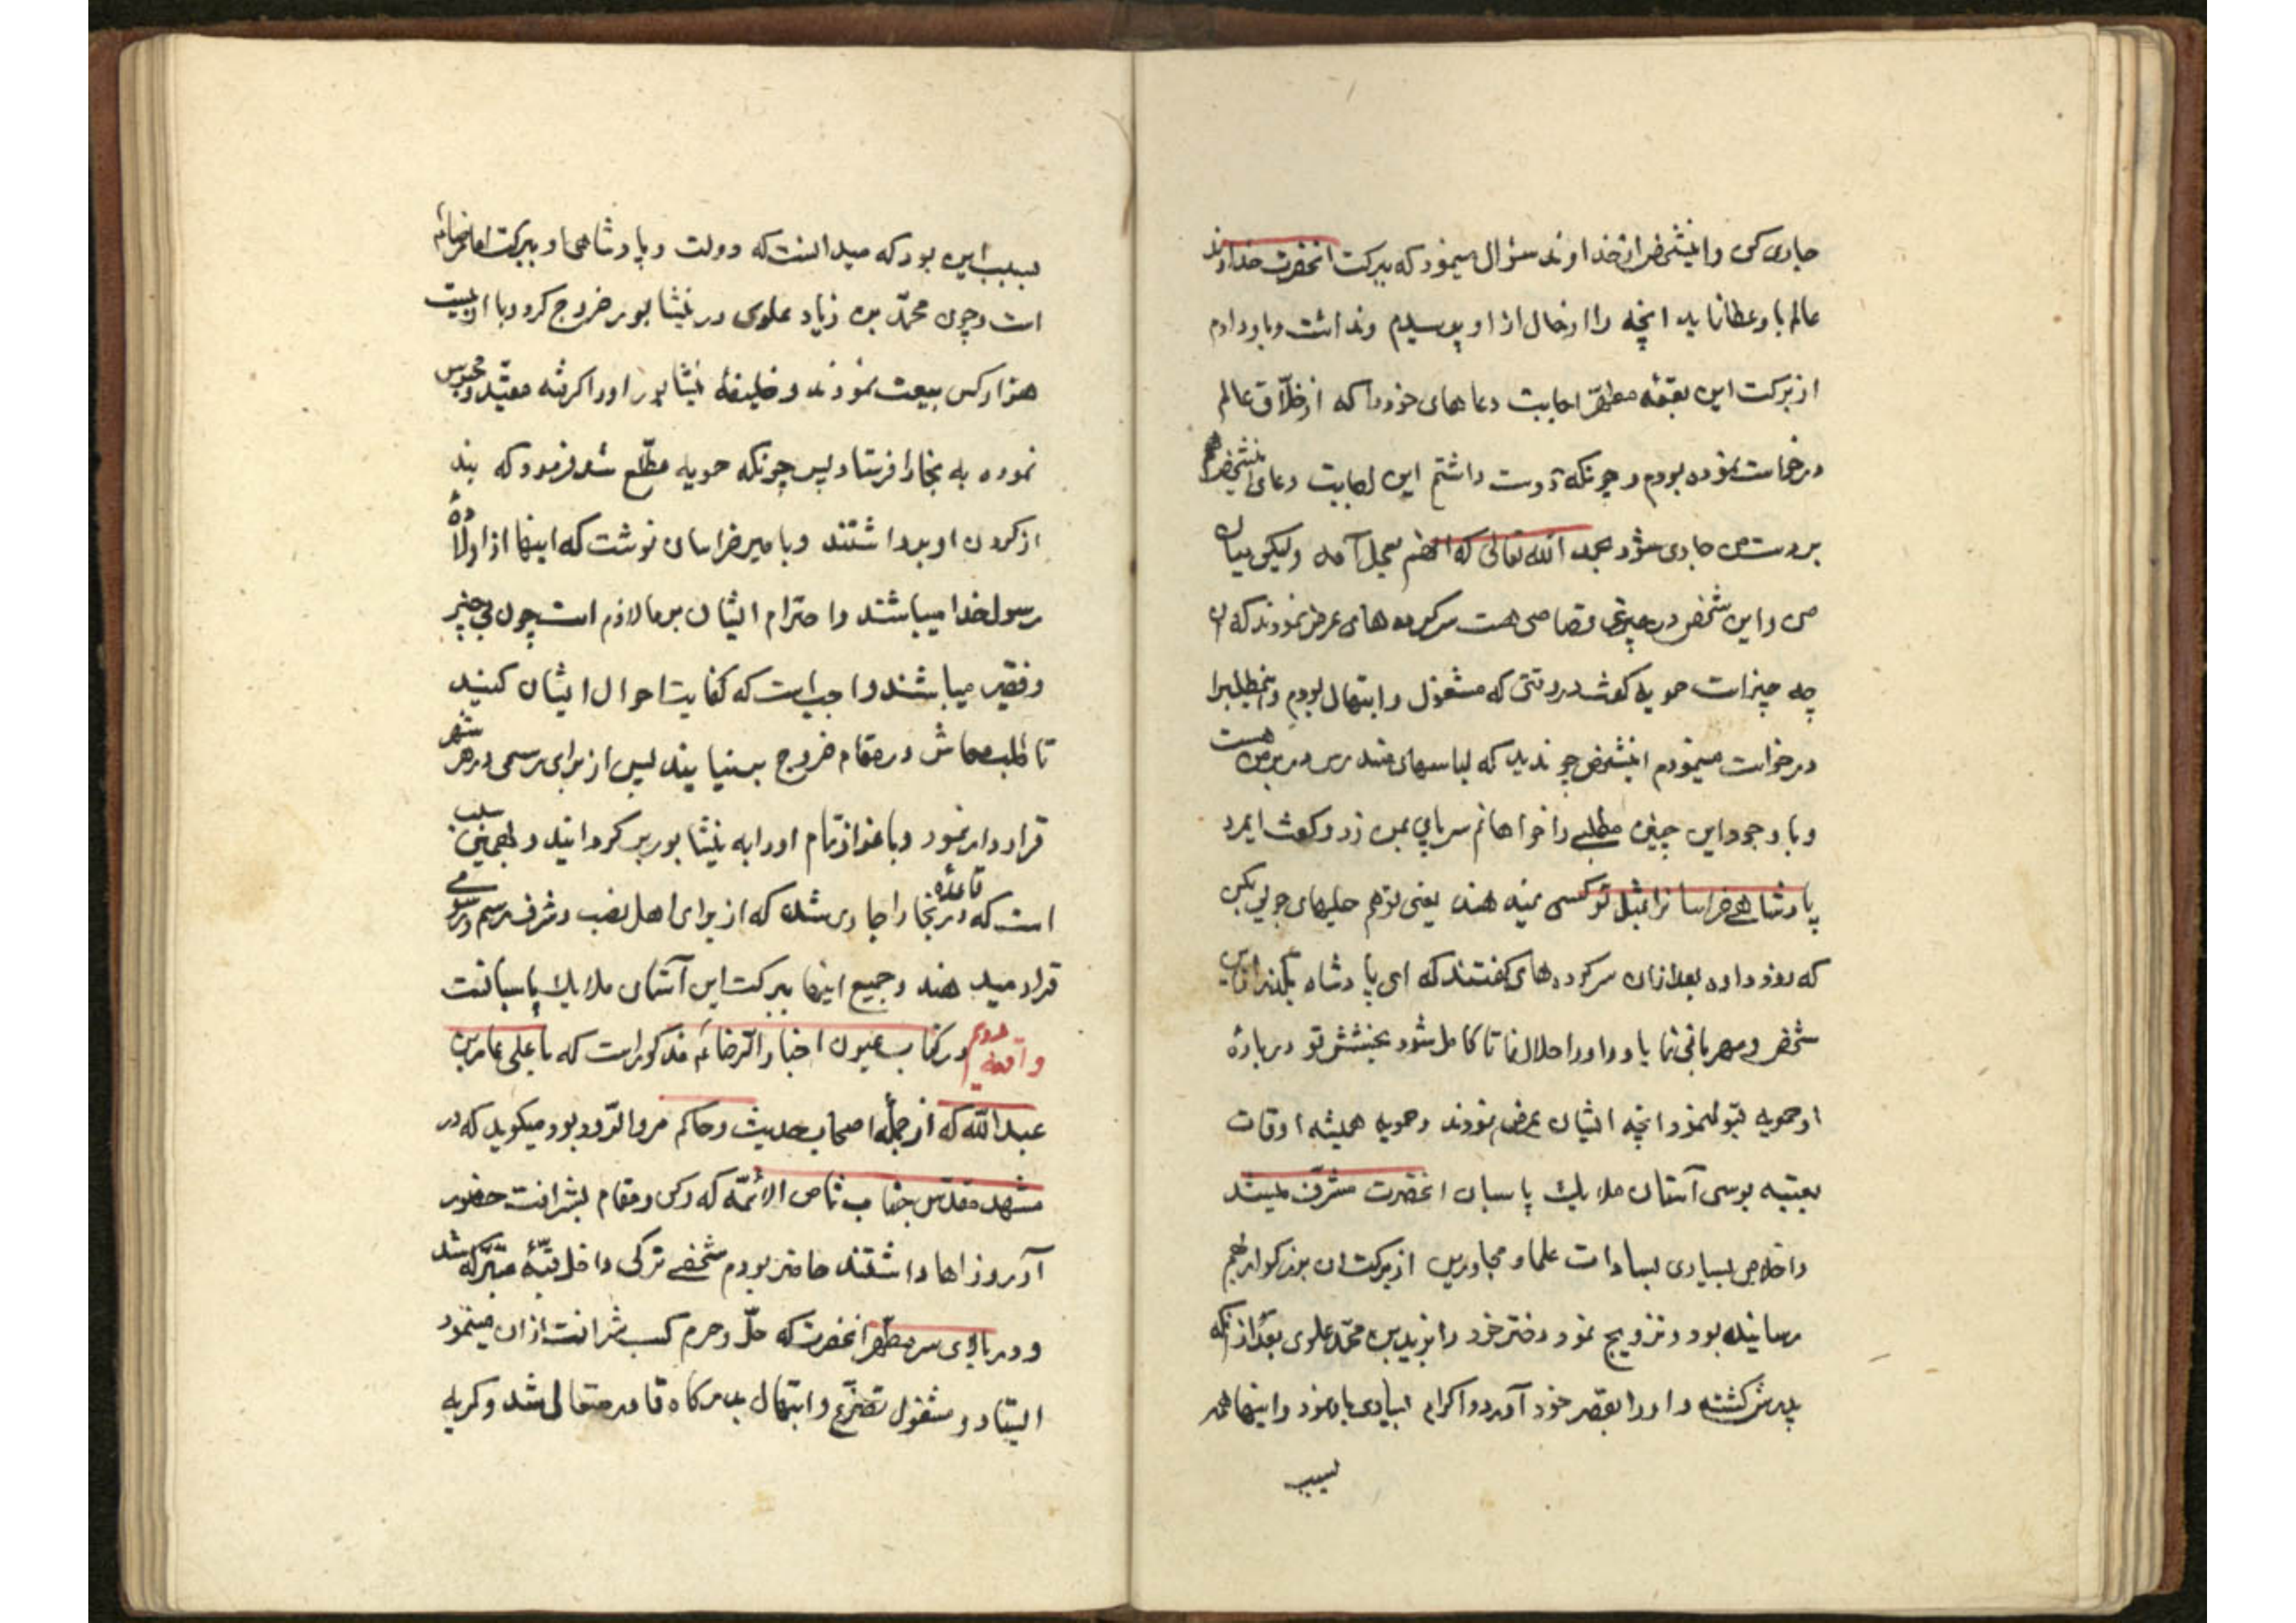 جاری کن و اینشخص از خداوند سؤال مینمود که ببرکت انحضرت خداوند
عالم باو عطا نماید انچه را در انحال از او پرسیدم و ندانست و باو دادم
از برکت این بقعهٔ مطهّر اجابت دعاهای خود را که از خلّاق عالم
درخواست نموده بودم و چونکه دوست داشتم این اجابت دعای اینشخص هم
بر دست من جاری شود بحمد الله تعالی که انهم بعمل آمد ولیکن میان
من و این شخص در چیزی قصاصی هست سرکرده های عرض نمودند که ان
چه چیز است حمویه گفت در وقتی که مشغول و ابتهال بودم و اینمطلب را
درخواست مینمودم اینشخص چون دید که لباسهای مندرس در بر من هست
و با وجود این چنین مطلبی را خواهانم سر پایی بمن زد و گفت ایمرد
پادشاهی خراسانرا بمثل تو کسی نمیدهند یعنی تو هم حلیهای جویی بکن
که روز داده بعد ازان سرکرده های گفتند که ای پادشاه بگذر از این
شخص و مهربانی نما باو و او را حلال نما تا کامل شود بخشش تو در بارهٔ
او حمویه قبول نمود انچه ایشان عرض نمودند و حمویه همیشه اوقات
بعتبه بوسی آستان ملایک پاسبان انحضرت مشرّف میشد
و اخلاص بسیاری بسادات علما و مجاورین از برکت ان بزرگوار بهم
رسانیده بود و تزویج نمود دختر خود را بزید بن محمّد علوی بعد از انکه
پدرش کشته و او را بقصر خود آورد و اکرام بسیاری باو نمود و اینها همه
بسبب
بسبب این بود که میدانست که دولت و پادشاهی او ببرکت امام رضا ءم
است و چون محمّد بن زیاد علوی در نیشابور خروج کرد و با او بیست
هزار کس بیعت نمودند و خلیفهٔ نیشابور او را گرفته مقیّد و محبوس
نموده به بخارا فرستاد پس چونکه حمویه مطّلع شد فرمود که بند
از گردن او برداشتند و بامیر خراسان نوشت که اینها از اولاده
رسول خدا میباشند و احترام ایشان بر ما لازم است چون بی چیز
و فقیر میباشند واجب است که کفایت احوال ایشان کنید
تا طلب معاش در مقام خروج بر نیایند پس از برای رسمی در هر شهر
قرار دار نمود و با عزاز تمام او را به نیشابور بر گردانید و بهمین سبب
است که در بخارا قاعدهٔ جاری شده که از برای اهل نصب و شرف رسم و رسومی
قرار میدهند و جمیع اینها ببرکت این آستان ملایک پاسبانست
واقعه دوم در کتاب عیون اخبار الرّضا ءم مذکور است که باعلی عامر بن
عبد اللّه که از جملهٔ اصحاب حدیث و حاکم مروالرّود بود میگوید که در
مشهد مقدّس جناب ثامن الائمّه که رکن و مقام بشرافت حضور
آرزوزاها داشتند حاضر بودم شخصی ترکی داخل قبّهٔ متبرّکه شد
و در بالای سر مطهّر انحضرت که حلّ و حرم کسب شرافت از ان مینمود
ایستاد و مشغول تضرّع و ابتهال بدرگاه قادر متعالی شد و گریه